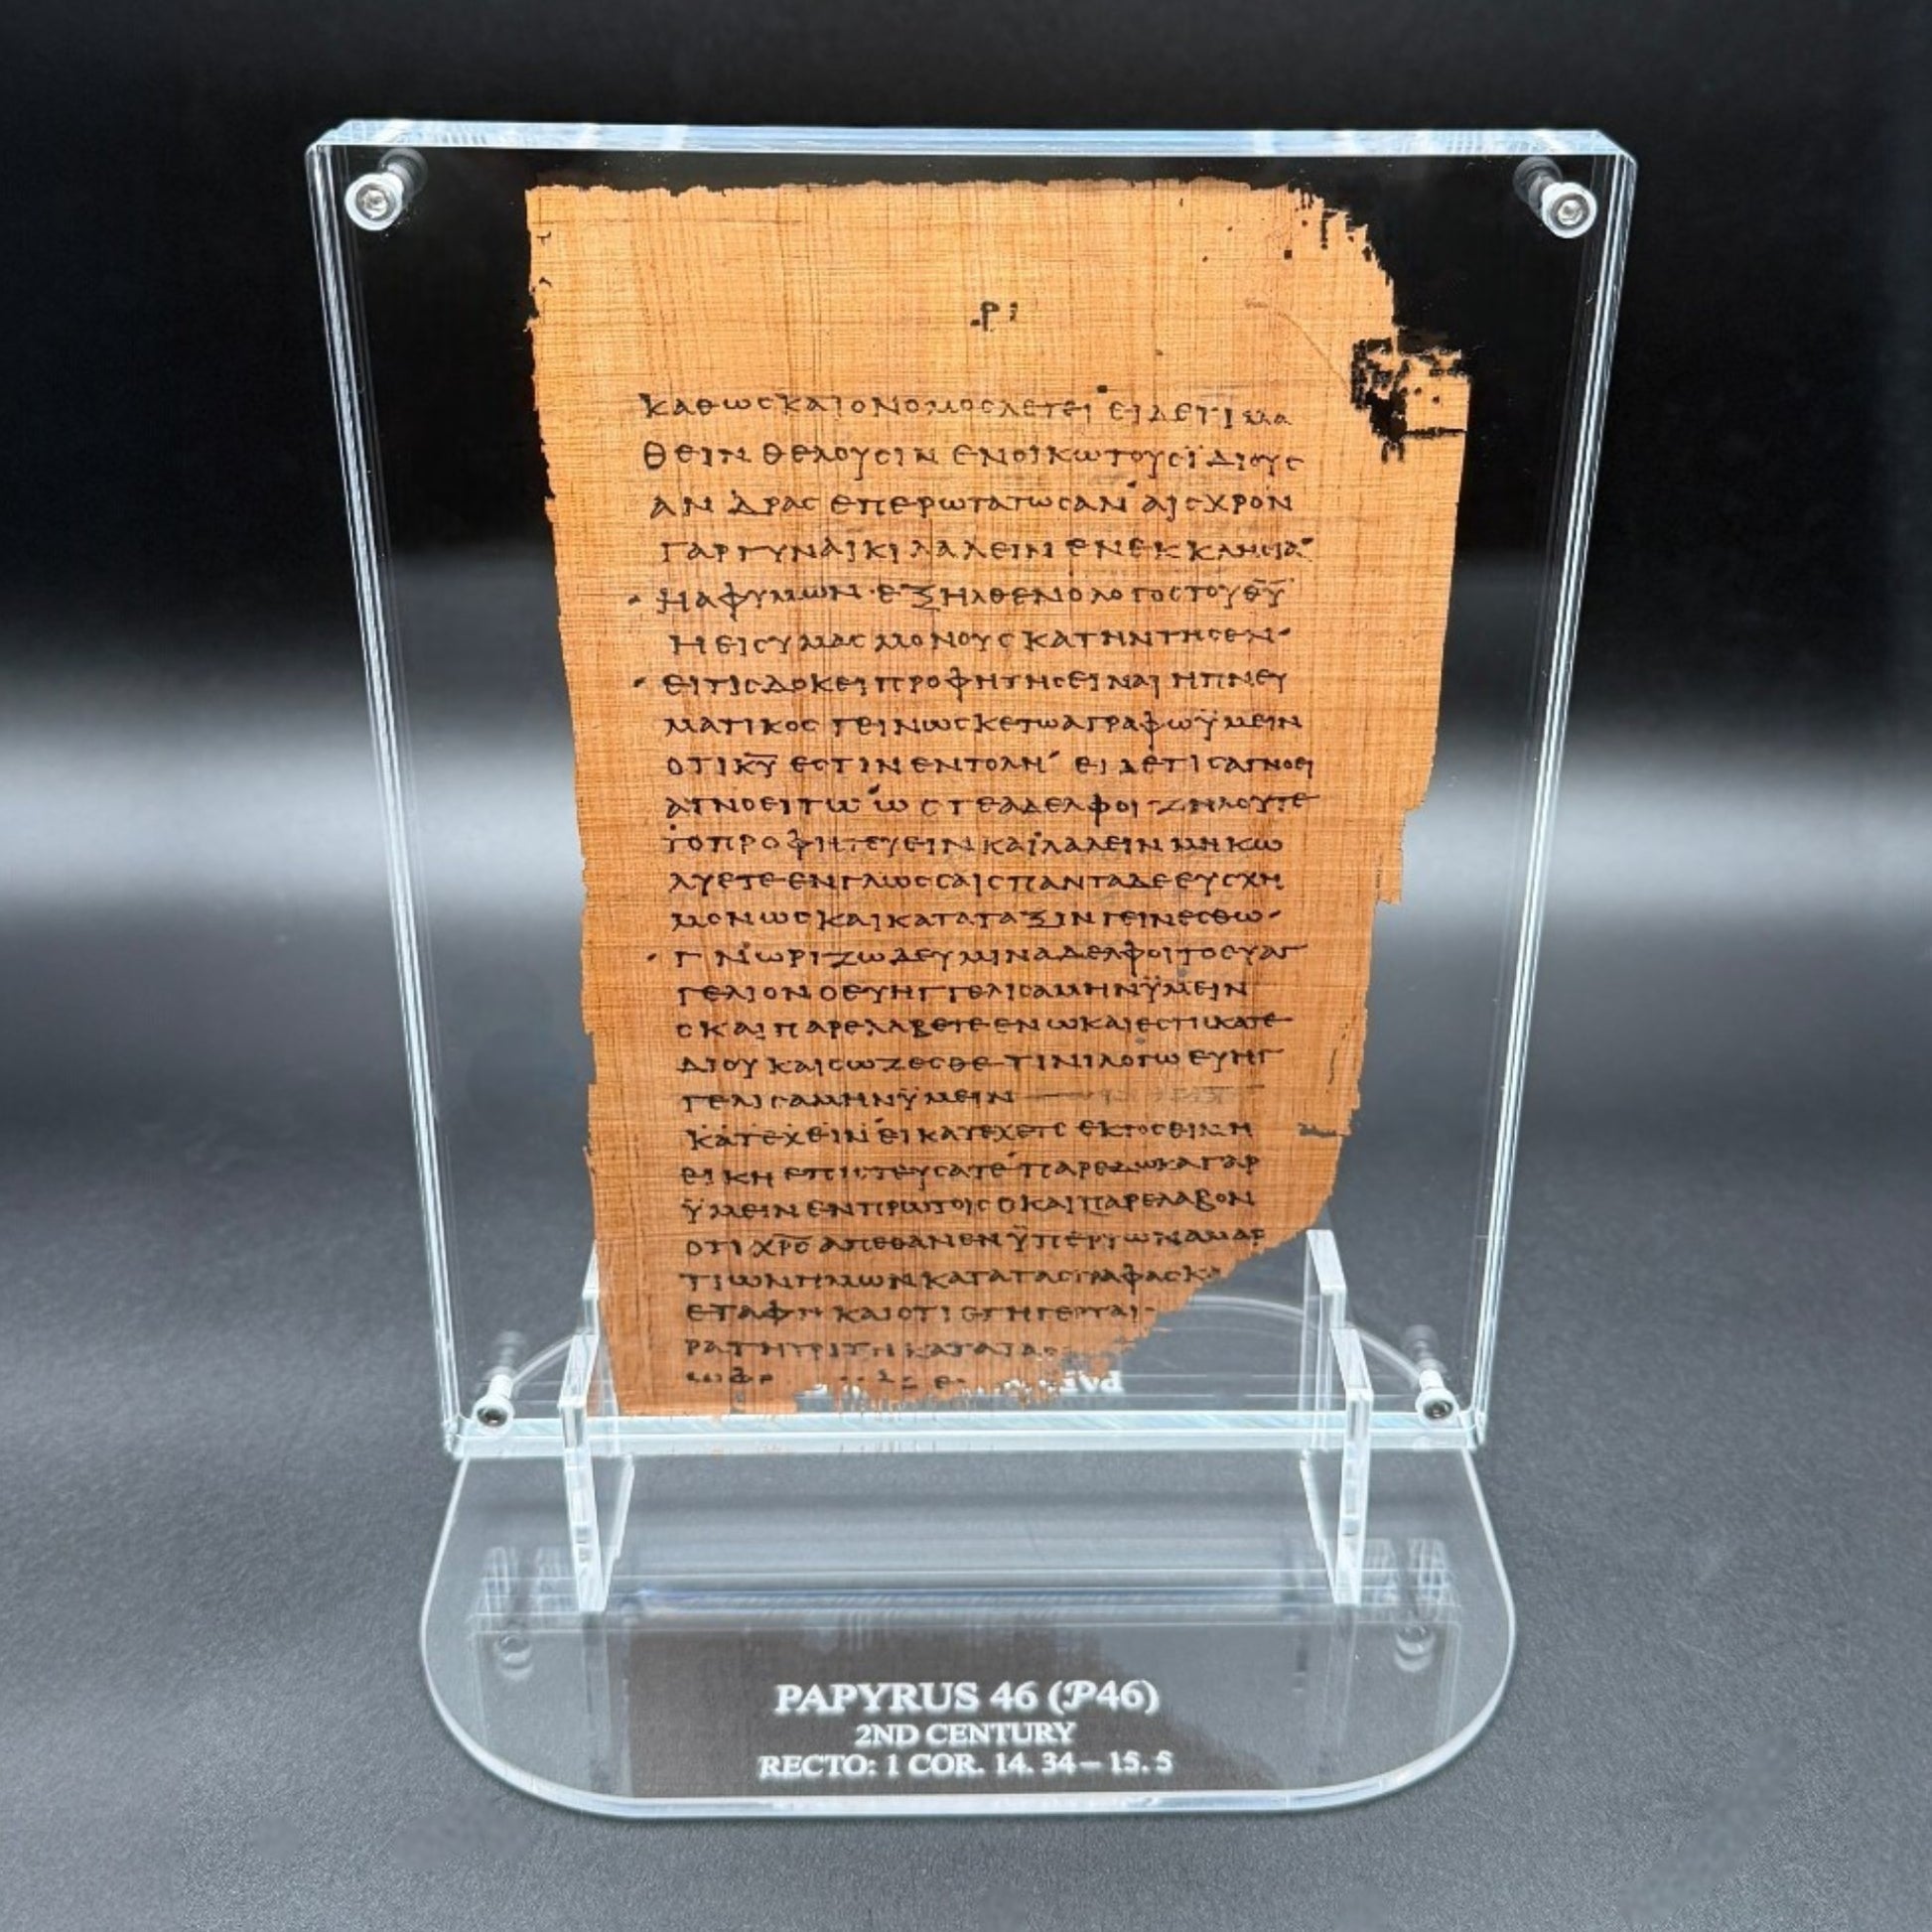 ·ΡΙ
ΚΑΘΩϹΚΑΙΟΝΟΜΟϹΛΕΓΕΙ ΕΙΔΕΤΙΜΑ
ΘΕΙΝ ΘΕΛΟΥϹΙΝ ΕΝΟΙΚΩΤΟΥϹΪΔΙΟΥϹ
ΑΝΔΡΑϹ ΕΠΕΡΩΤΑΤΩϹΑΝ ΑΙϹΧΡΟΝ
ΓΑΡ ΓΥΝΑΙΚΙ ΛΑΛΕΙΝ ΕΝΕΚΚΛΗϹΙΑ
·ΗΑΦΥΜΩΝ ΕΞΗΛΘΕΝΟΛΟΓΟϹΤΟΥΘ̅Υ̅
ΗΕΙϹΥΜΑϹ ΜΟΝΟΥϹ ΚΑΤΗΝΤΗϹΕΝ·
·ΕΙΤΙϹΔΟΚΕΙΠΡΟΦΗΤΗϹΕΙΝΑΙ ΗΠΝΕΥ
ΜΑΤΙΚΟϹ ΓΕΙΝΩϹΚΕΤΩΑΓΡΑΦΩΫΜΕΙΝ
ΟΤΙΚ̅Υ̅ ΕϹΤΙΝ ΕΝΤΟΛΗ ΕΙΔΕΤΙϹΑΓΝΟΕΙ
ΑΓΝΟΕΙΤΩ ΩϹΤΕΑΔΕΛΦΟΙ ΖΗΛΟΥΤΕ
ΤΟΠΡΟΦΗΤΕΥΕΙΝ ΚΑΙΛΑΛΕΙΝ ΜΗ ΚΩ
ΛΥΕΤΕ ΕΝΓΛΩϹϹΑΙϹ ΠΑΝΤΑΔΕ ΕΥϹΧΗ
ΜΟΝΩϹ ΚΑΙ ΚΑΤΑΤΑΞΙΝ ΓΕΙΝΕϹΘΩ·
·ΓΝΩΡΙΖΩΔΕΥΜΙΝΑΔΕΛΦΟΙΤΟΕΥΑΓ
ΓΕΛΙΟΝ Ο ΕΥΗΓΓΕΛΙϹΑΜΗΝΫΜΕΙΝ
ΟΚΑΙΠΑΡΕΛΑΒΕΤΕ ΕΝ ΩΚΑΙΕϹΤΗΚΑΤΕ
ΔΙΟΥ ΚΑΙϹΩΖΕϹΘΕ ΤΙΝΙΛΟΓΩ ΕΥΗΓ
ΓΕΛΙϹΑΜΗΝΫΜΕΙΝ
ΚΑΤΕΧΕΙΝ ΕΙ ΚΑΤΕΧΕΤΕ ΕΚΤΟϹΕΙΜΗ
ΕΙΚΗ ΕΠΙϹΤΕΥϹΑΤΕ ΠΑΡΕΔΩΚΑ ΓΑΡ
ΫΜΕΙΝ ΕΝΠΡΩΤΟΙϹ ΟΚΑΙΠΑΡΕΛΑΒΟΝ
ΟΤΙ Χ̅Ρ̅Ϲ̅ ΑΠΕΘΑΝΕΝ ΫΠΕΡΤΩΝΑΜΑΡ
ΤΙΩΝΗΜΩΝ ΚΑΤΑΤΑϹΓΡΑΦΑϹΚΑ
ΕΤΑΦΗ ΚΑΙΟΤΙ ΕΓΗΓΕΡΤΑΙ
ΡΑΤΗΤΡΙΤΗ ΚΑΤΑΤΑϹ
PAPYRUS 46 (𝒫46)
2ND CENTURY
RECTO: 1 COR. 14. 34 – 15. 5